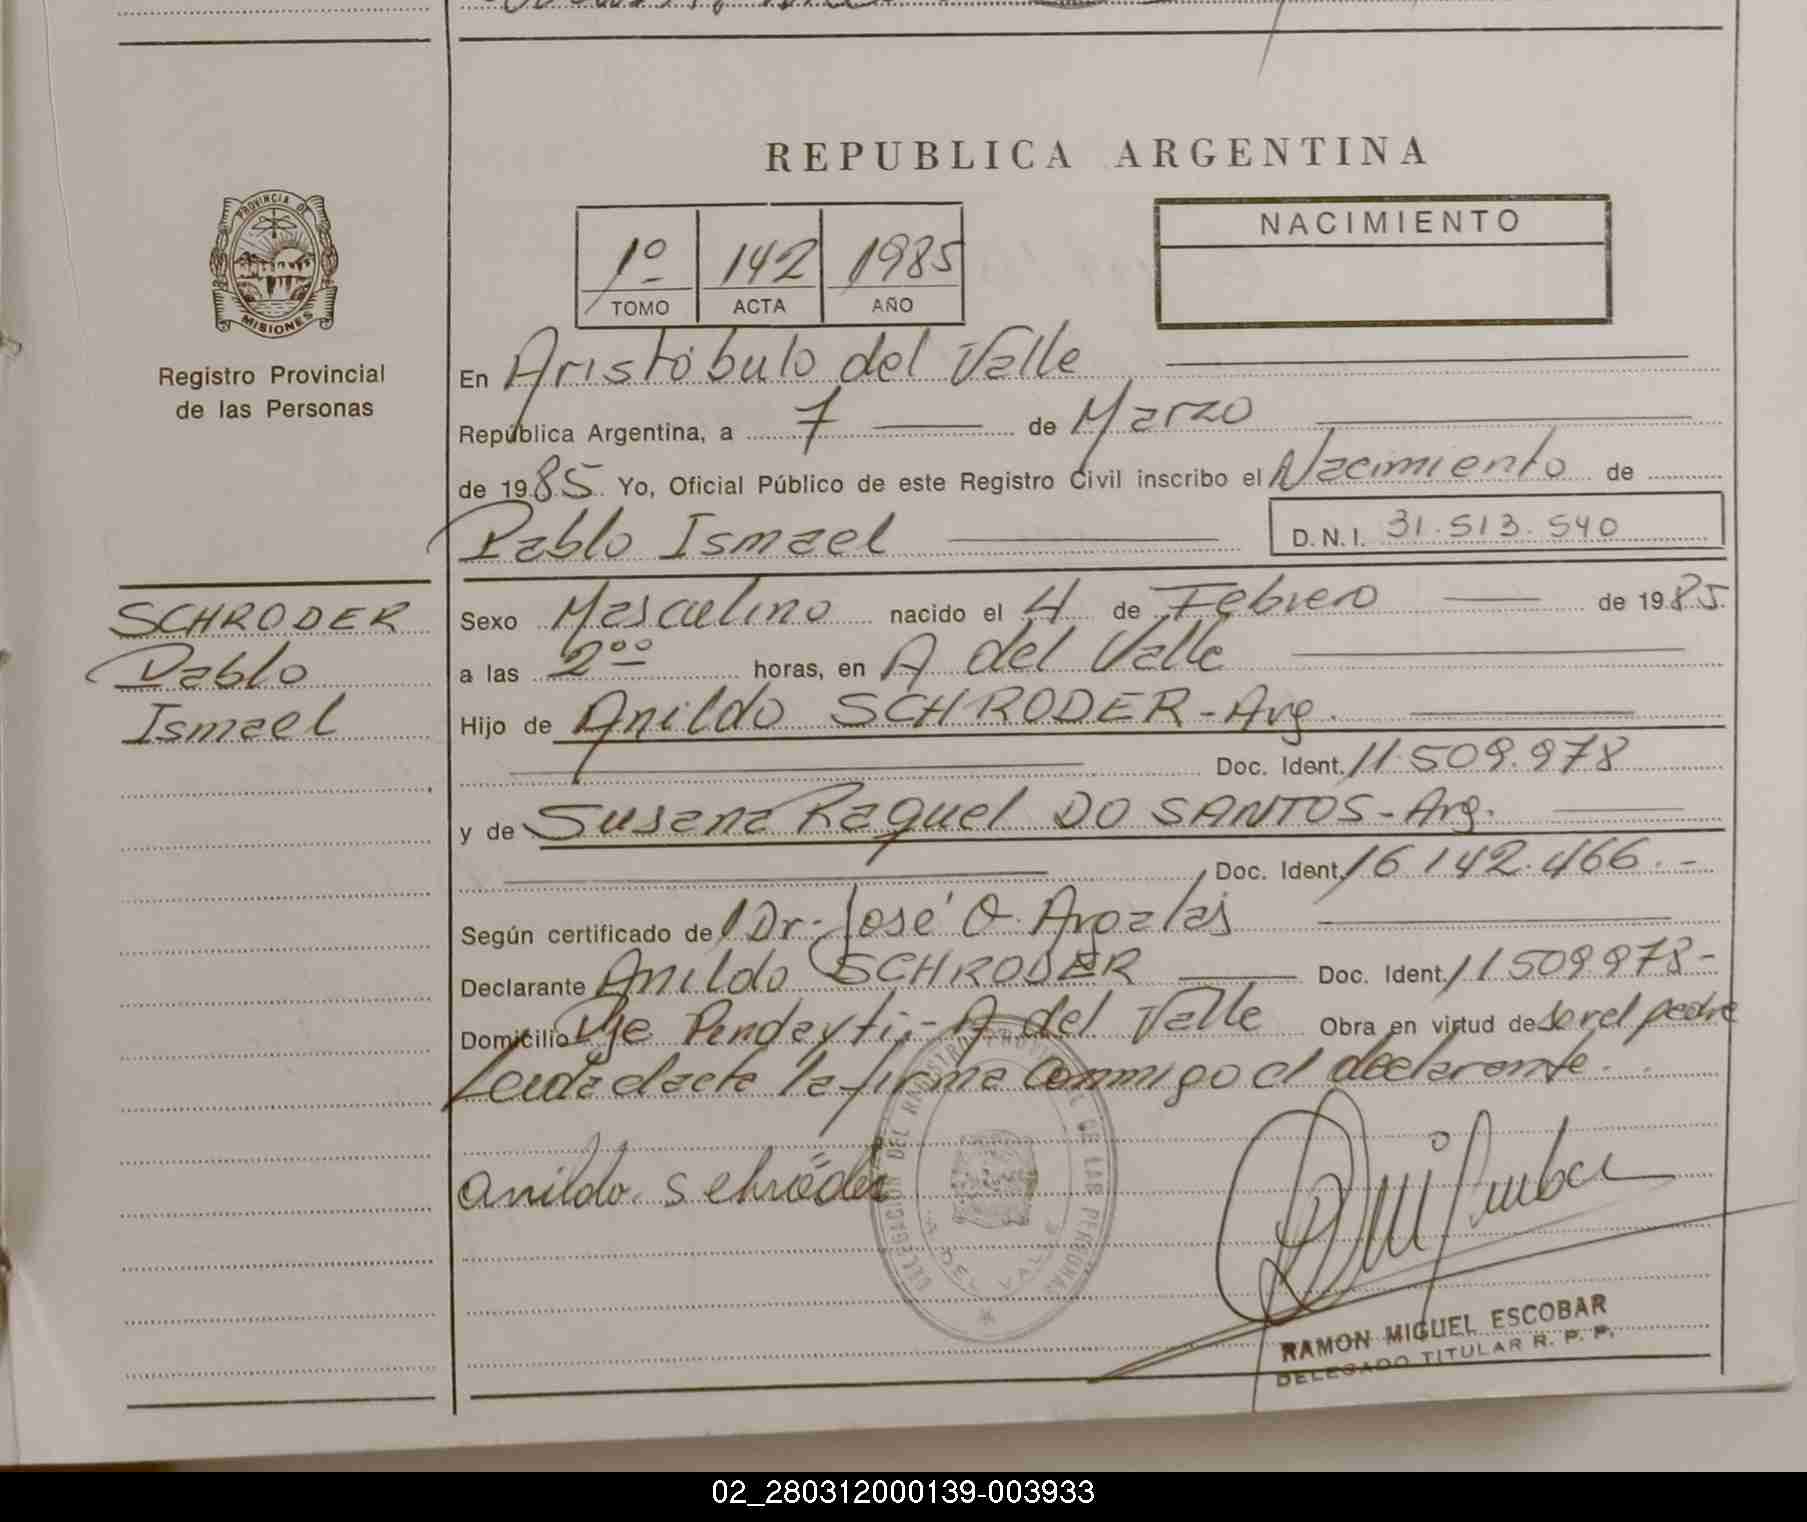 REPUBLICA ARGENTINA
PROVINCIA DE
MISIONES
Registro Provincial
de las Personas
1º 142 1985
TOMO ACTA AÑO
NACIMIENTO
En Aristóbulo del Valle
República Argentina, a 7 de Marzo
de 1985. Yo, Oficial Público de este Registro Civil inscribo el Nacimiento de
Pablo Ismael
D.N.I. 31.513.540
SCHRODER
Pablo
Ismael
Sexo Masculino nacido el 4 de Febrero de 1985.
a las 2⁰⁰ horas, en A del Valle
Hijo de Anildo SCHRODER - Arg.
Doc. Ident. 11.509.978
y de Susana Raquel DO SANTOS - Arg.
Doc. Ident. 16.142.466.-
Según certificado de Dr. José O.
Declarante Anildo SCHRODER Doc. Ident. 11509978-
Domicilio Pje - A del Valle Obra en virtud de ser el padre
Leida el acta la firma conmigo el declarante.
anildo. Schröder
DELEGACION DEL REGISTRO PROVINCIAL DE LAS PERSONAS
A. DEL VALLE
RAMON MIGUEL ESCOBAR
DELEGADO TITULAR R. P. P.
02_280312000139-003933